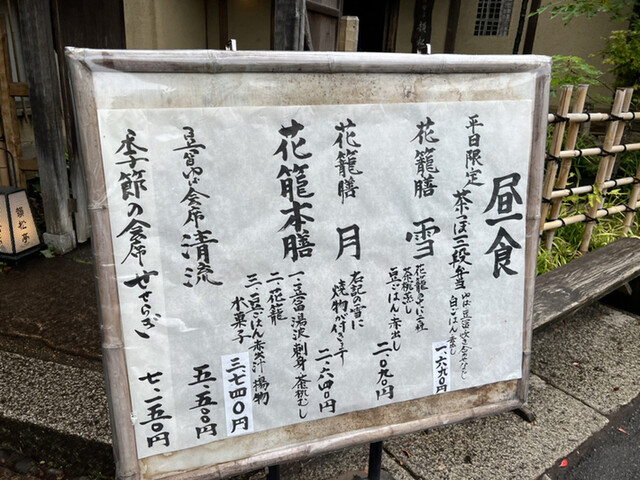 昼食
平日限定
茶つぼ三段弁当
白ごはん・赤だし
一、六九〇円
花籠膳 雪
茶椀蒸し
豆ごはん・赤出し
二、〇九〇円
花籠膳 月
右記の雪に
焼物が付きます
二、六四〇円
花籠本膳
一、豆富 湯沢刺身 茶椀むし
二、花籠
三、豆ごはん 赤出汁 揚物
水菓子
三、七四〇円
豆富ゆば会席 清流
五、五〇〇円
季節の会席 せせらぎ
七、一五〇円